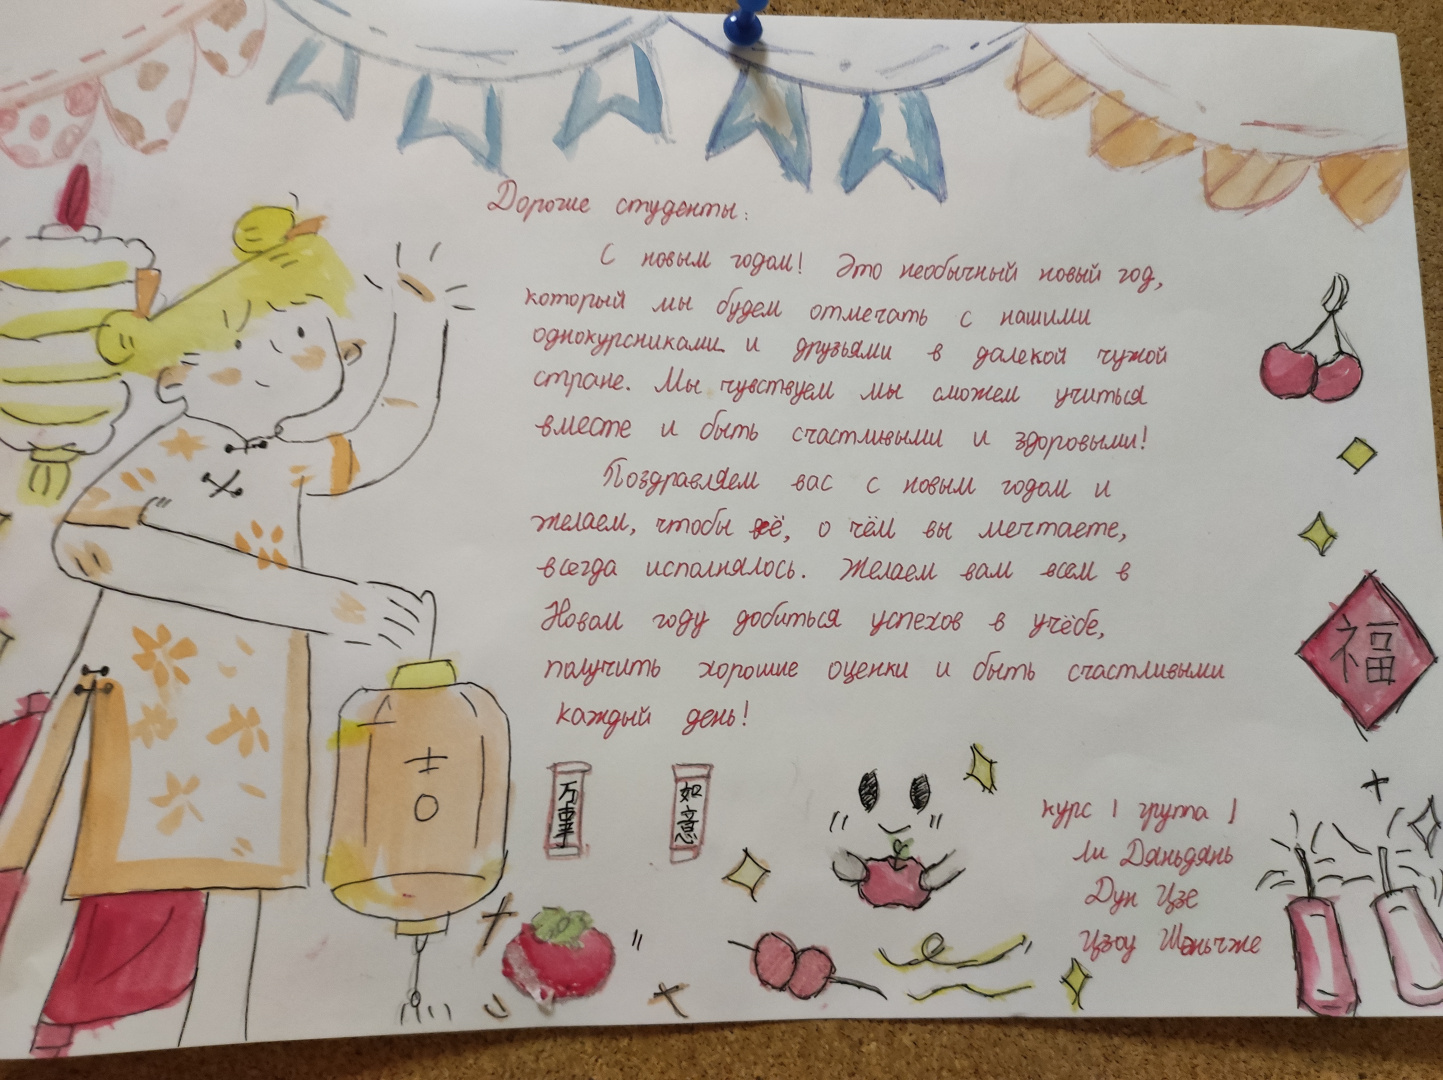 Дорогие студенты:
С новым годом! Это необычный новый год,
который мы будем отмечать с нашими
однокурсниками и друзьями в далекой чужой
стране. Мы чувствуем мы сможем учиться
вместе и быть счастливыми и здоровыми!
Поздравляем вас с новым годом и
желаем, чтобы всё, о чём вы мечтаете,
всегда исполнялось. Желаем вам всем в
Новом году добиться успехов в учёбе,
получить хорошие оценки и быть счастливыми
каждый день!
福
万事
如意
курс 1 группа 1
Ли Даньдань
Дун Цзе
Цзоу Шэньчже